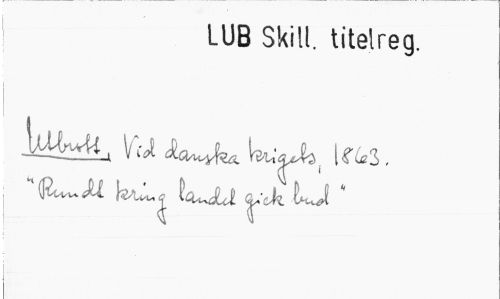 LUB Skill. titelreg.
Utbrott, Vid danska krigets, 1863.
"Rundt kring landet gick bud"